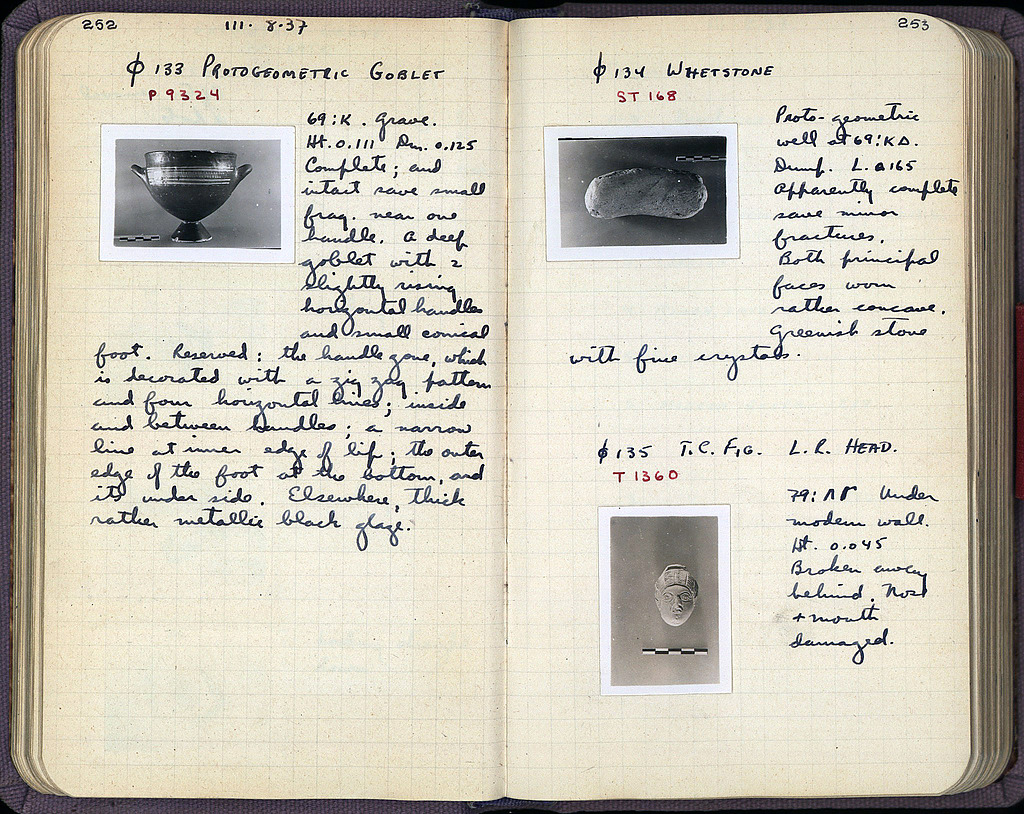 252
III. 8.37
φ 133 PROTOGEOMETRIC GOBLET
P 9324
69:K. Grave.
Ht. 0.111 Dm. 0.125
Complete; and
intact save small
frag. near one
handle. A deep
goblet with 2
slightly rising
horizontal handles
and small conical
foot. Reserved: the handle zone, which
is decorated with a zig zag pattern
and four horizontal lines; inside
and between handles; a narrow
line at inner edge of lip; the outer
edge of the foot at the bottom, and
its under side. Elsewhere, thick
rather metallic black glaze.
253
φ 134 WHETSTONE
ST 168
Proto-geometric
well at 69:ΚΔ.
Dump. L. 0.165
Apparently complete
save minor
fractures.
Both principal
faces worn
rather concave.
Greenish stone
with fine crystals.
φ 135 T.C. FIG. L.R. HEAD.
T 1360
79: ΛΓ Under
modern wall.
Ht. 0.045
Broken away
behind. Nose
+ mouth
damaged.